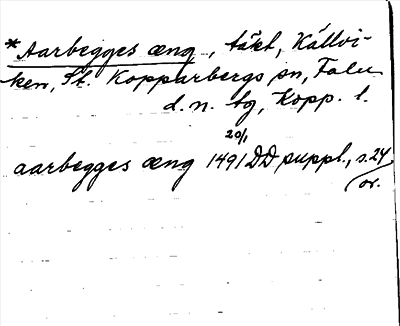 *Aarbegges æng, täkt, Källvi-
ken, St. Kopparbergs sn, Falu
d. n. tg, Kopp. l.
20/1
aarbegges æng 1491 DD suppl., s. 24
or.